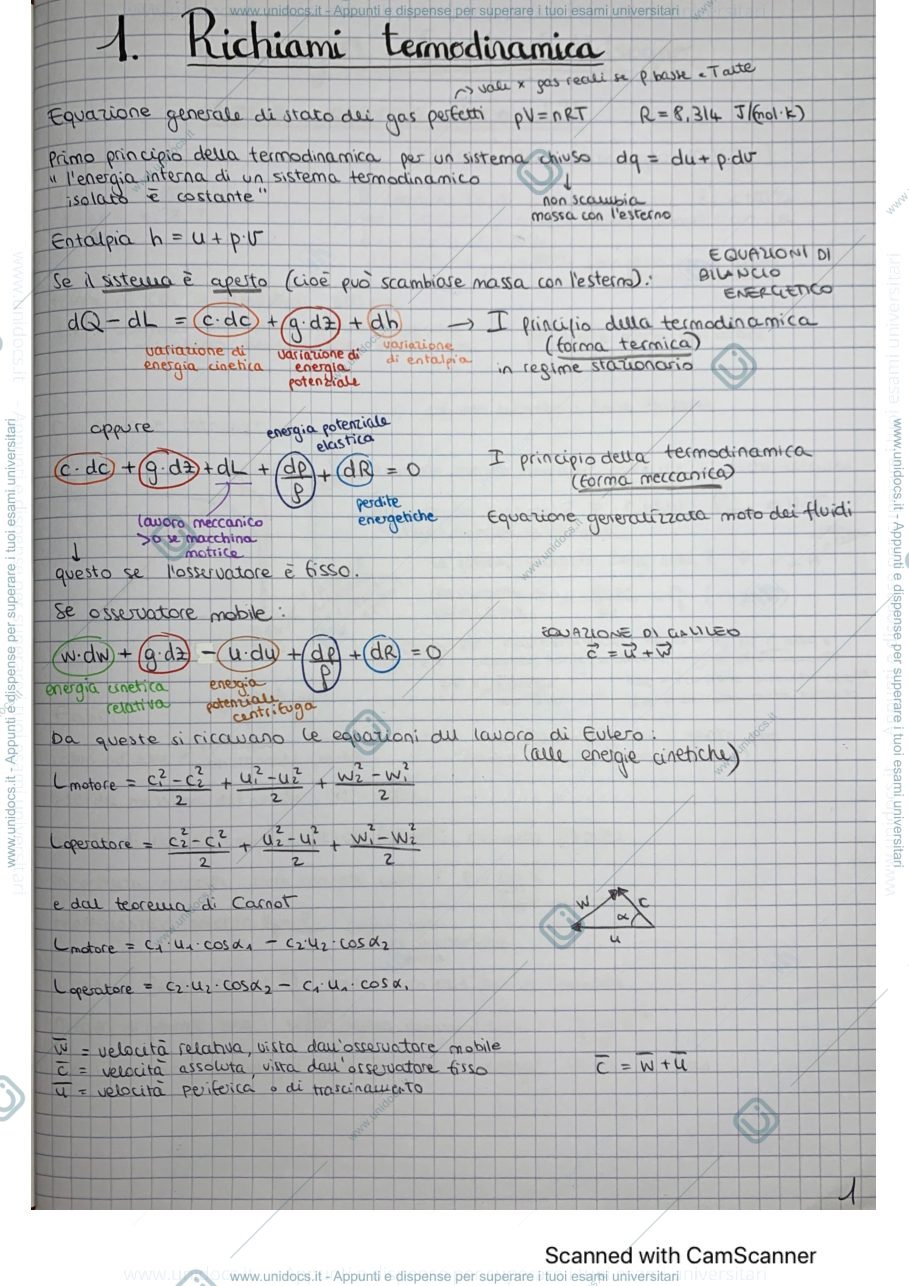 www.unidocs.it - Appunti e dispense per superare i tuoi esami universitari
1. Richiami termodinamica
→ vale x gas reali se p basse e T alte
Equazione generale di stato dei gas perfetti pV = nRT R = 8,314 J/(mol·K)
Primo principio della termodinamica per un sistema chiuso dq = du + p·dv
"l'energia interna di un sistema termodinamico
isolato è costante"
↓
non scambia
massa con l'esterno
Entalpia h = u + p·v
Se il sistema è aperto (cioè può scambiare massa con l'esterno):
EQUAZIONI DI
BILANCIO
ENERGETICO
dQ - dL = c·dc + g·dz + dh → I principio della termodinamica
(forma termica)
in regime stazionario
variazione di
energia cinetica
variazione di
energia
potenziale
variazione
di entalpia
oppure
energia potenziale
elastica
c·dc + g·dz + dL + dp/ρ + dR = 0
I principio della termodinamica
(forma meccanica)
perdite
energetiche
Equazione generalizzata moto dei fluidi
lavoro meccanico
>0 se macchina
motrice
↓
questo se l'osservatore è fisso.
Se osservatore mobile:
EQUAZIONE DI GALILEO
c⃗ = u⃗ + w⃗
w·dw + g·dz - u·du + dp/ρ + dR = 0
energia cinetica
relativa
energia
potenziale
centrifuga
Da queste si ricavano le equazioni del lavoro di Eulero:
(alle energie cinetiche)
Lmotore = (c₁² - c₂²)/2 + (u₁² - u₂²)/2 + (w₂² - w₁²)/2
Loperatore = (c₂² - c₁²)/2 + (u₂² - u₁²)/2 + (w₁² - w₂²)/2
e dal teorema di Carnot
w c α u
Lmotore = c₁·u₁·cosα₁ - c₂·u₂·cosα₂
Loperatore = c₂·u₂·cosα₂ - c₁·u₁·cosα₁
w̄ = velocità relativa, vista dall'osservatore mobile
c̄ = velocità assoluta, vista dall'osservatore fisso
ū = velocità periferica o di trascinamento
c̄ = w̄ + ū
1
Scanned with CamScanner
www.unidocs.it - Appunti e dispense per superare i tuoi esami universitari
www.unidocs.it - Appunti e dispense per superare i tuoi esami universitari
www.unidocs.it - Appunti e dispense per superare i tuoi esami universitari